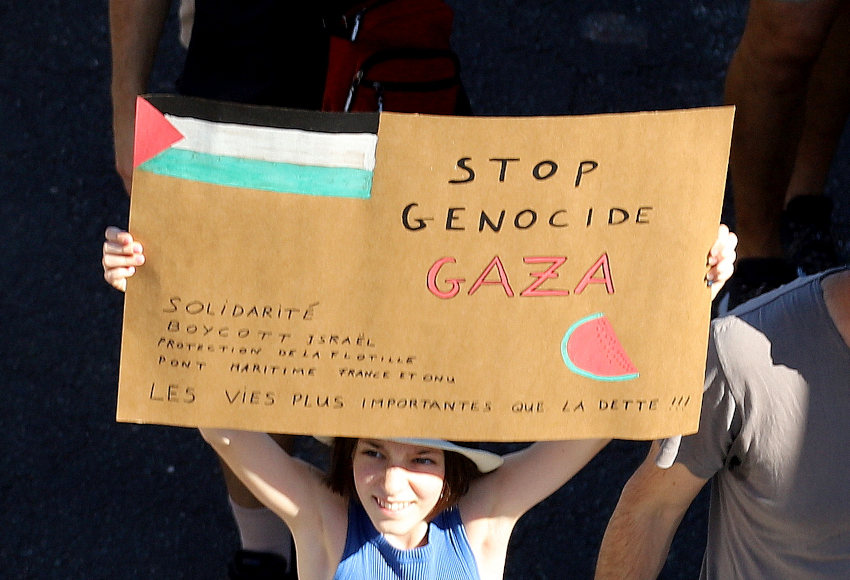 STOP
GENOCIDE
GAZA
SOLIDARITÉ
BOYCOTT ISRAËL
PROTECTION DE LA FLOTILLE
PONT MARITIME FRANCE ET ONU
LES VIES PLUS IMPORTANTES QUE LA DETTE !!!